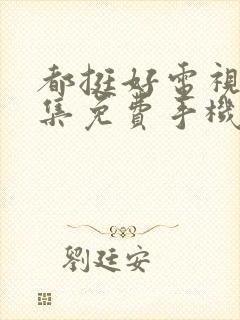 都挺好電視
集免費手機
劉廷安